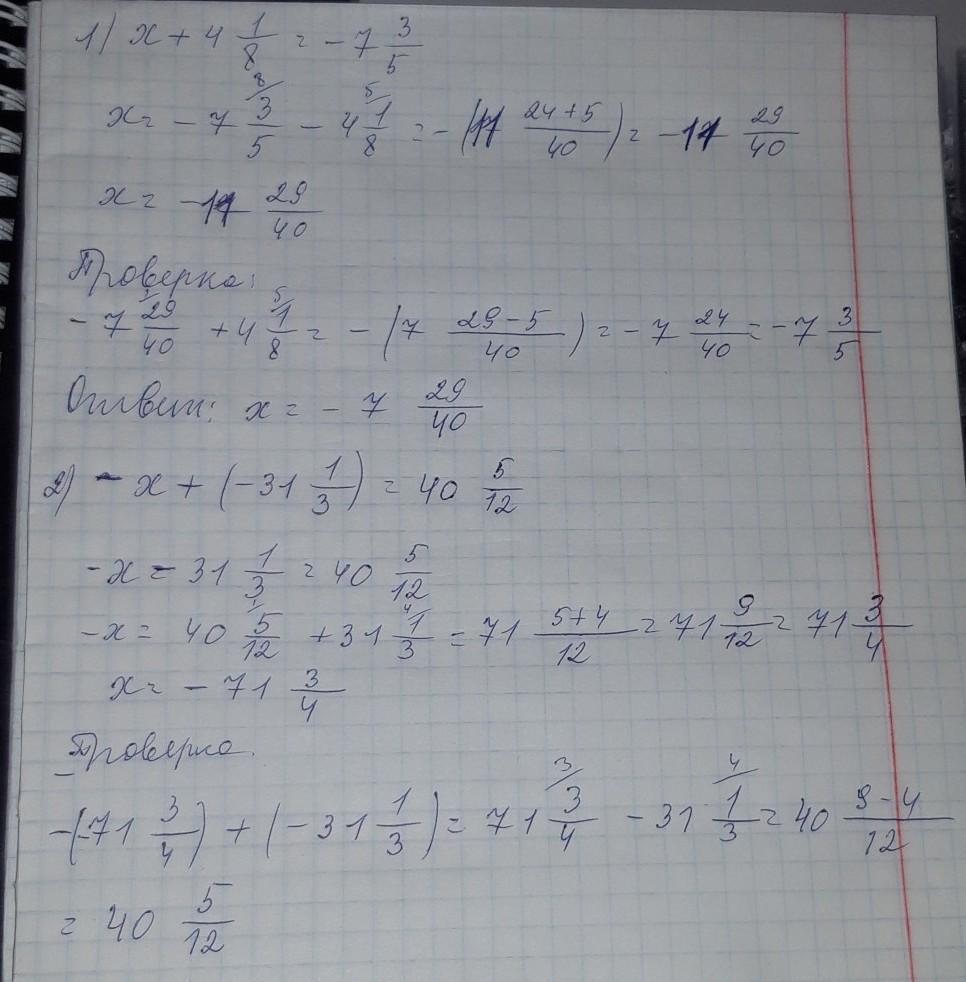 1) x + 4 1/8 = - 7 3/5
x = - 7 3/5 (8/ - 4 1/8 (5/ = - (11 (24+5)/40) = - 11 29/40
x = - 11 29/40
Проверка:
- 7 29/40 (1/ + 4 1/8 (5/ = - (7 (29-5)/40) = - 7 24/40 = - 7 3/5
Ответ: x = - 7 29/40
2) - x + (-31 1/3) = 40 5/12
-x - 31 1/3 = 40 5/12
-x = 40 5/12 (1/ + 31 1/3 (4/ = 71 (5+4)/12 = 71 9/12 = 71 3/4
x = - 71 3/4
Проверка.
-(-71 3/4) + (-31 1/3) = 71 3/4 (3/ - 31 1/3 (4/ = 40 (9-4)/12
= 40 5/12